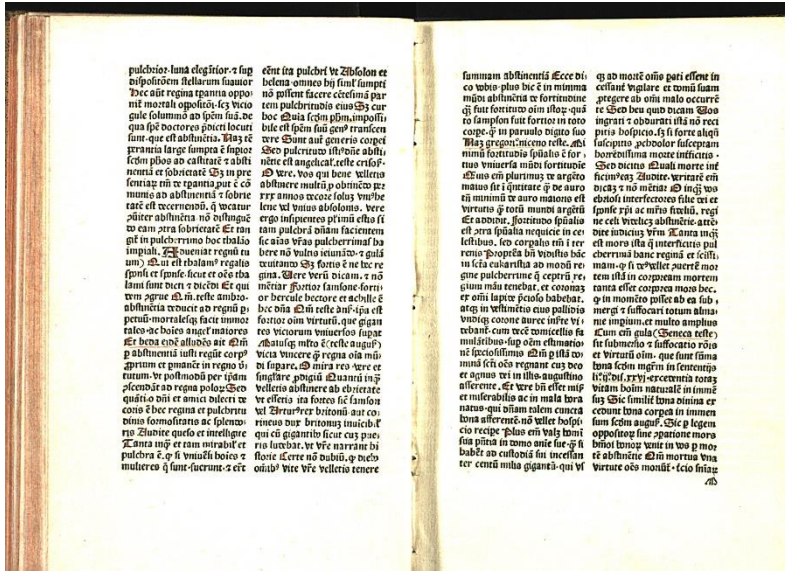 pulchrior luna elegātior ⁊ sup
dispositōem stellarum suauior
Hec aūt regina tpantia oppo
nif mortali oppositōi scz vicio
gule solummo ad spēm suā. de
qua spē doctores pdicti locuti
sunt que est abstinētia. Naz tē
perantia large sumpta ē supior
scdm phōs ad castitatē ⁊ absti
nentiā et sobrietatē Sz in pre
sentiaꝝ tm̄ de tpantia put ē cō
munis ad abstinentiā ⁊ sobrie
tatē est decernendū. q vocatur
abstinētia nō distinguē
do eam ptra sobrietatē Et tan
git in pulcherrimo hoc thalāo
impiali. Adueniat regnū tu
um) Qui est thalamꝰ regalis
sponsi et sponse sicut et oēs tha
lami sunt dicti ⁊ dicēdi Et qui
dem Qm̄. teste ambro.
abstinētia reducit ad regnū p
petuū mortalesqz facit immor
tales ac hoīes angeľ maiores
Et beda eidē alludēs ait Qm̄
p abstinentiā iusti regūt corpꝰ
proprium et ꝑmanēt in regno vir
tutum. vt postmodū per ipam
ascendāt ad regna poloꝝ Sed
quāti o dn̄i et amici dilecti de
coris ē hec regina et pulchritu
dinis formositatis ac splendo
ris Audite queso et intelligite
Tanta inqz et tam mirabiľ et
pulchra ē. q si vniuersi hoīes ⁊
mulieres q sunt fuerunt ⁊ erūt
eēnt ita pulchri vt Absolon et
helena omnes hij simľ sumpti
nō possent facere cētesimā par
tem pulchritudis eius Sz cur
hoc Quia scdm phm̄. impossi
bile est spēm suū genꝰ transcen
dere Sunt aūt generis corpei
Sed pulcritudo istiꝰ dn̄e absti
nētie est angelicaľ. teste crisost.
O vere, vos qui bene velletis
abstinere multū p obtinēdo per
xxx annos decore solum vniꝰ he
lene vel vnius absolonis. vere
ergo insipientes plīmū estis si
tam pulchrā dn̄am facientem
sic aīas vrās pulcherrimas ha
bere nō vultis ieiunādo ⁊ gulā
deuitando Sz fortis ē ne hec re
gina. Vere verū dicam. ⁊ nō
mētiar Fortior samsone forti
or hercule hectore et achille ē
hec dn̄a Qm̄ teste anš. ipa est
fortior oīm virtutū. que gigan
tes viciorum vniuersos supat
Maiusqz mīro ē (teste augusꝰ)
vicia vincere q regna oīa mū
di supare. O mira res vere et
singľare pdigiū Quantū inqz
velletis abstinere ab ebrietate
vt essetis ita fortes sic samson
vel Arturrex britonū aut co
rineus dux britonuz inuicibiľ
qui cū gigantibꝰ sicut cuz pue
ris ludebat. vt vrē narrant hi
storie Certe nō dubiū. q dieb
omibꝰ vite vrē velletis tenere
summam abstinentiā Ecce di
co vobis. plus hic ē in minima
mūdi abstinētia de fortitudine
q fuit fortitudo oīm istoꝝ quā
to sampson fuit fortior in toto
corpe. q in paruulo digito suo
Naz gregori niceno teste. Mi
nimū fortitudis spūalis ē for
tius vniuersa mūdi fortitudīe
Quis em̄ plurimuz de argēto
maius sit ī qutitate q de auro
tn̄ minimū de auro maioris est
virtutis q totū mundi argētū
Et addidit. Fortitudo spūalis
est ꝯtra spūalia nequicie in ce
lestibus. sed corpalis tm̄ ī ter
renis Proptea bn̄ vidistis hāc
in scta eukaristia ad modū re
gine pulcherrime q ceptrū re
gium manu tenebat. et coronaz
ex omī lapide pcioso habebat.
atqz in vestimētis eius pallidis
vndiqz corone auree infte vi
debant. cum decē domicellis fa
mulātibus. sup oēm estimatio
nē speciosissimis Qm̄ p istā do
minā scti oēs regnant cuz deo
et agnus dei in illis. augustino
asserente. Et vere bn̄ esset misꝰ
et miserabilis ac in mala hora
natus. qui dn̄am talem cuncta
bona afferentē. nō vellet hospi
cio recipe Plus em̄ valz domi
sua pn̄tia in domo aīe sue. q si
haberet ad custodiā sui incessan
ter centū milia gigantū. qui vs
qz ad mortē oīns pati essent in
cessant vigilare et domū suam
ptegere ab omi malo occurrē
te Sed heu quid dicam Uos
ingrati ⁊ obdurati istā nō reci
pitis hospicio. sz si forte aliqn̄
suscipitis pchdolor susceptam
horrēdissima morte inficitis.
Sed dicitis Quali morte inf
ficimꝰeaz Audite. veritatē em̄
dicaz ⁊ nō mētiar O inqz vos
ebriosi interfectores filie dei et
sponse xpi ac mrīs fidelium. regi
ne celi videlicz abstinētie. attē
dite iudiciuz vrm̄ Tanta inqz
est mors ista q interficitis pul
cherrimā banc reginā et scissi
mam. q si deꝰ vellet puertē mor
tem istā in corpoream mortem
tanta esset corporea mors hec.
q in momēto posset ab ea sub
mergi ⁊ suffocari totum alma
nie impium. et multo amplius
Cum em̄ gula (Seneca teste)
sit submersio ⁊ suffocatio rōis
et virtutū oīm. que sunt sūma
bona scdm mgrm̄ in sententijs
li. ij. dis. xxvj. excedentia totaz
vitam hoīm naturalē in immē
suz Sic similiľ bona diuina ex
cedunt bona corpea in immen
sum scdm augusꝰ. Sic p legem
oppositoꝝ siue pparatione mors
hmoī bonoꝝ venit in vos p mor
tē abstinētie Qm̄ mortua vna
virtute oēs moriūt. fcio sniaꝝ
M